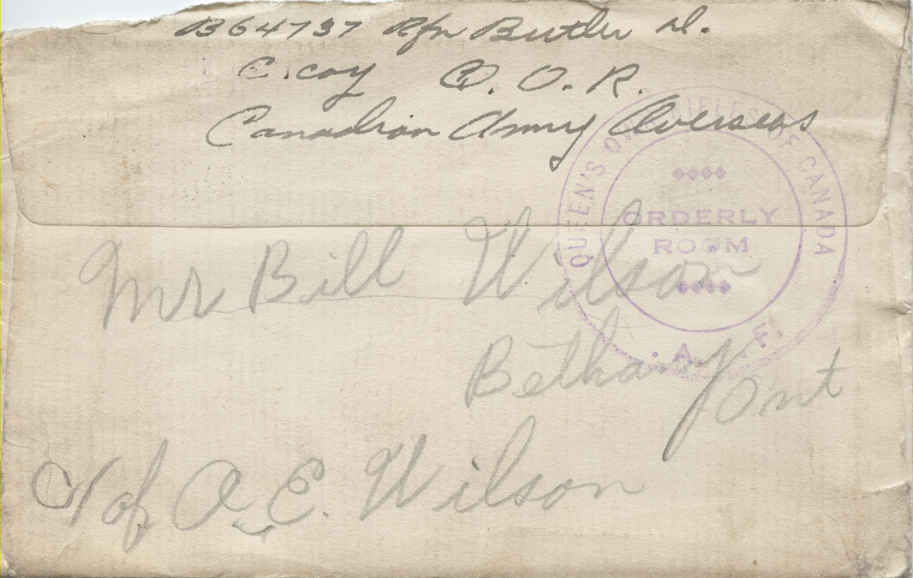 B64737 Rfn Butler D.
C. coy Q. O. R.
Canadian Army Overseas
QUEEN'S OWN RIFLES OF CANADA
ORDERLY
ROOM
A. F.
Mr Bill Wilson
Bethany Ont
c/of A. E. Wilson